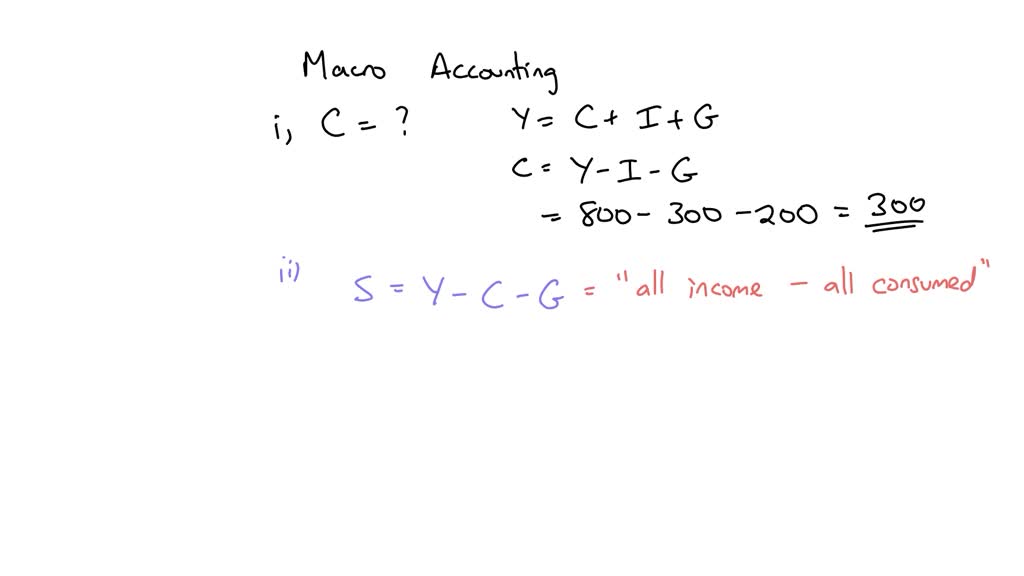 Macro Accounting
i, C = ? Y = C + I + G
C = Y - I - G
= 800 - 300 - 200 = 300
ii) S = Y - C - G = "all income - all consumed"